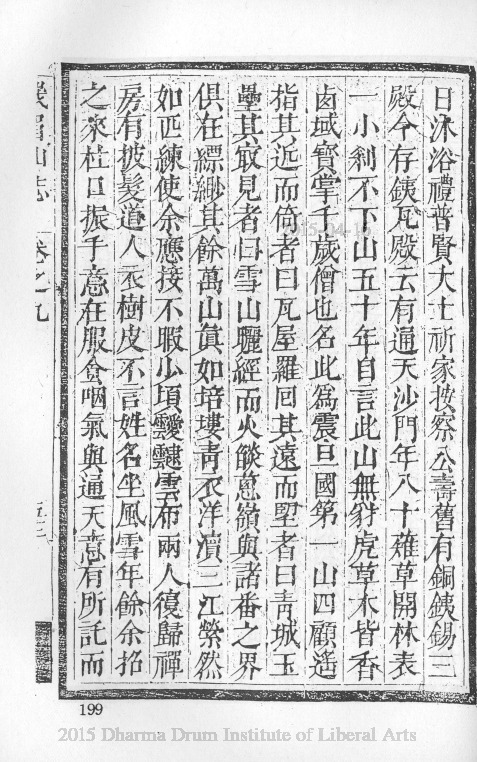 日沐浴禮普賢大士祈家按察公壽舊有銅銕錫三
殿今存銕瓦殿云有通天沙門年八十薙草開林表
一小剎不下山五十年自言此山無豺虎草木皆香
鹵域寳掌千歲僧也名此爲震旦國第一山四顧遙
指其近而倚者曰瓦屋羅回其遠而望者曰靑城玉
壘其㝡見者曰雪山驪經而火燄蔥嶺與諸番之界
俱在縹緲其餘萬山眞如培塿靑衣洋瀆三江縈然
如匹練使余應接不暇少頃靉靆雲布兩人復歸禪
房有披髮道人衣樹皮不言姓名坐風雪年餘余招
之來杜口振手意在服食咽氣與通天意有所託而
峩眉山志 卷之九
2015-04-16
199
2015 Dharma Drum Institute of Liberal Arts